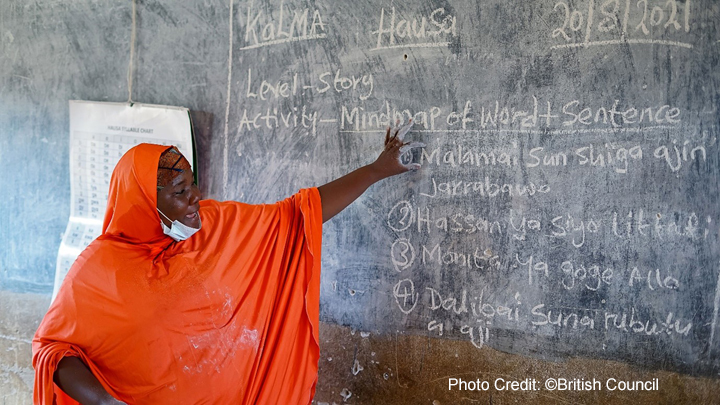 KALMA Hausa 20/8/2021
Level-Story
Activity-Mindmap of Word+Sentence
Malamai Sun shiga ajin
Jarrabawo
② Hassan Ya Siyo littafi
③ Monita Ya goge Allo
④ Dalibai Suna rubutu
a aji
HAUSA SYLLABLE CHART
Photo Credit: ©British Council